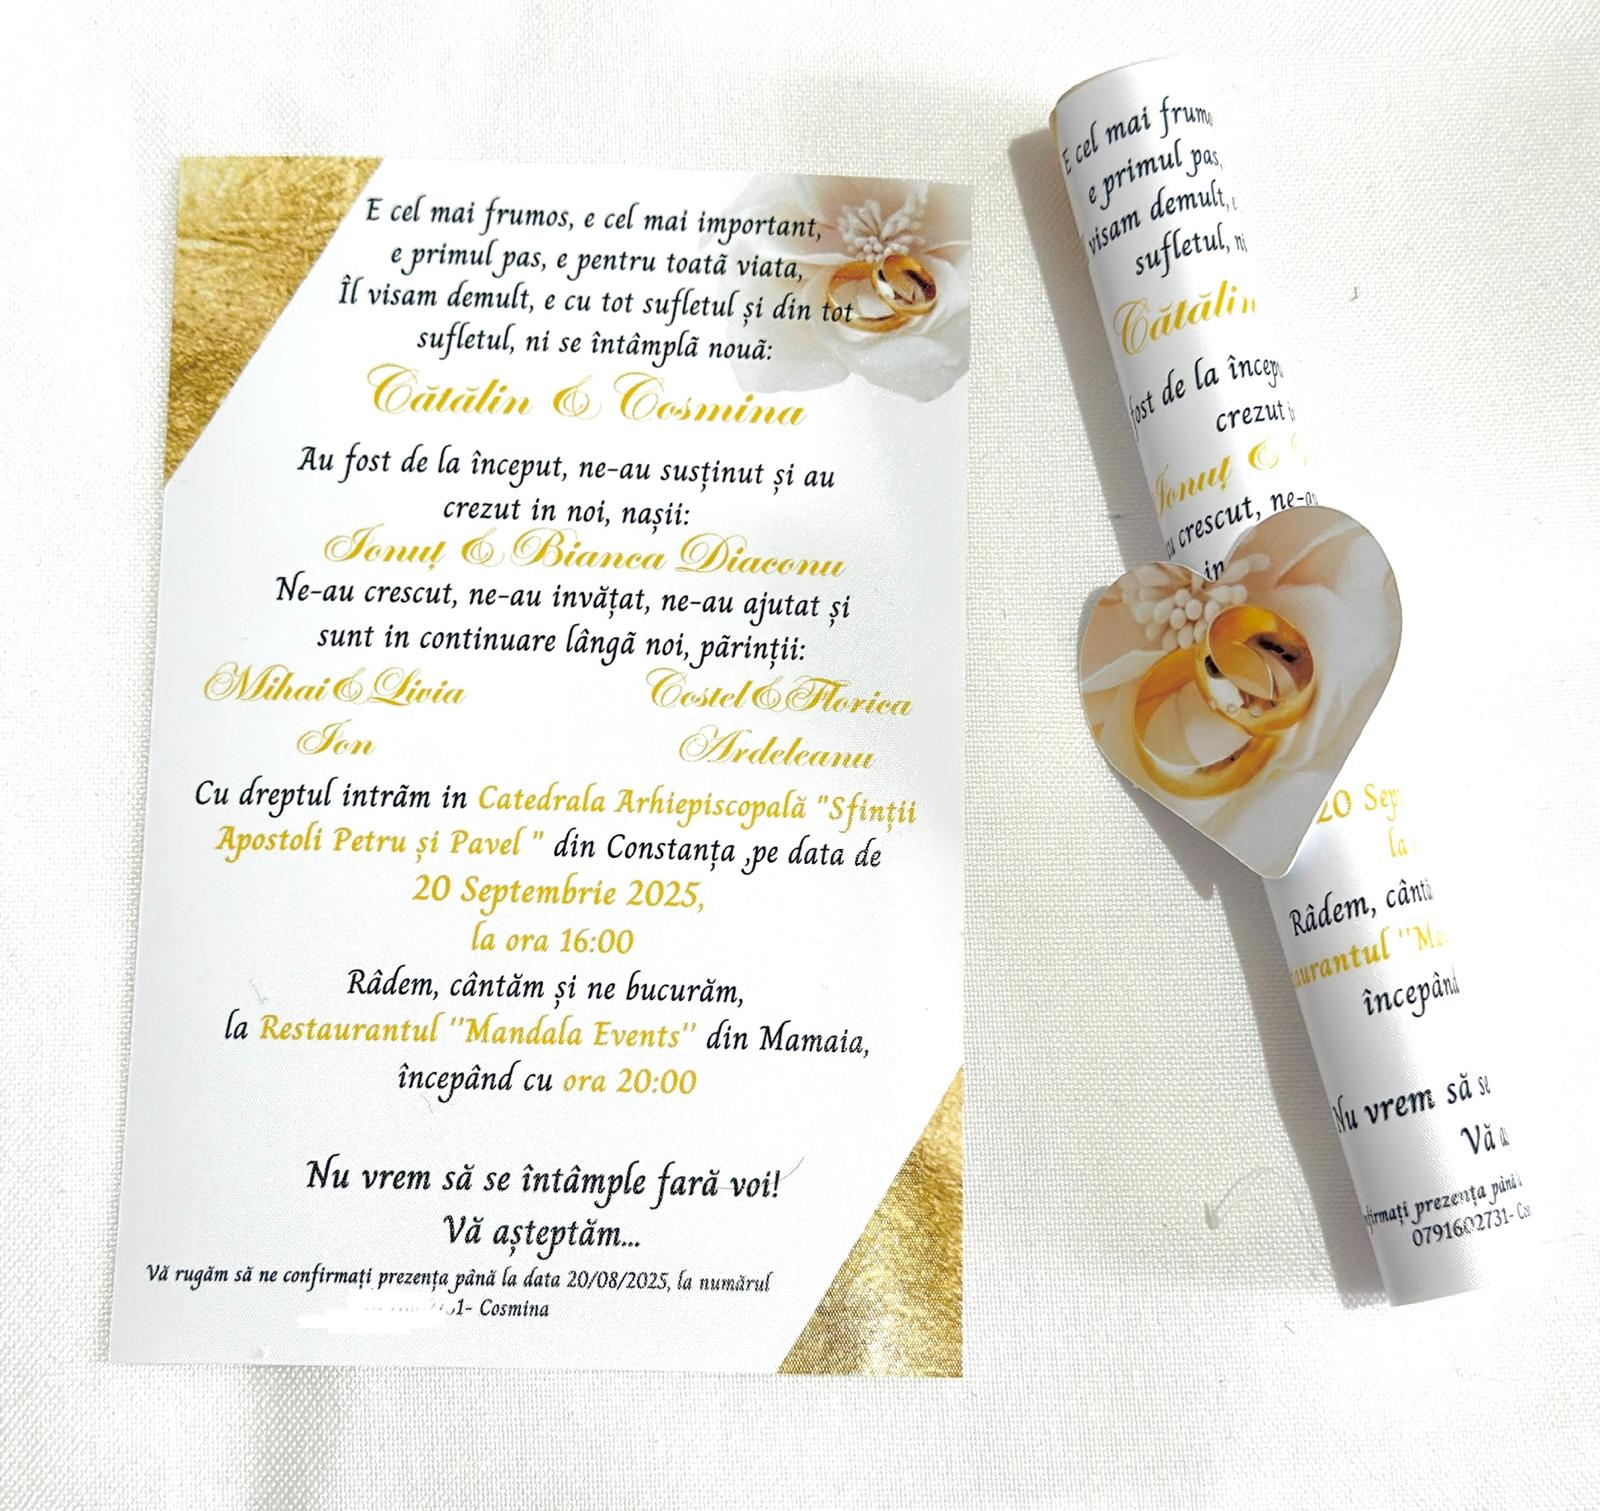 E cel mai frumos, e cel mai important,
e primul pas, e pentru toatã viata,
Îl visam demult, e cu tot sufletul și din tot
sufletul, ni se întâmplã nouã:
Cătălin & Cosmina
Au fost de la început, ne-au susținut și au
crezut in noi, nașii:
Ionuț & Bianca Diaconu
Ne-au crescut, ne-au invățat, ne-au ajutat și
sunt in continuare lângã noi, pãrinții:
Mihai & Livia
Ion
Costel & Florica
Ardeleanu
Cu dreptul intrãm in Catedrala Arhiepiscopală "Sfinții
Apostoli Petru și Pavel " din Constanța ,pe data de
20 Septembrie 2025,
la ora 16:00
Râdem, cântăm și ne bucurăm,
la Restaurantul ''Mandala Events'' din Mamaia,
începând cu ora 20:00
Nu vrem să se întâmple fară voi!
Vă așteptăm...
Vă rugăm să ne confirmați prezența până la data 20/08/2025, la numărul
1- Cosmina
E cel mai frum
e primul pas,
visam demult,
sufletul, ni
Cătălin
fost de la încep
crezut
Ionuț &
crescut, ne-au
in
20 Sep
la
Râdem, cânt
aurantul ''M
începând
Nu vrem să se
Vă
firmați prezența până
0791602731- Cos